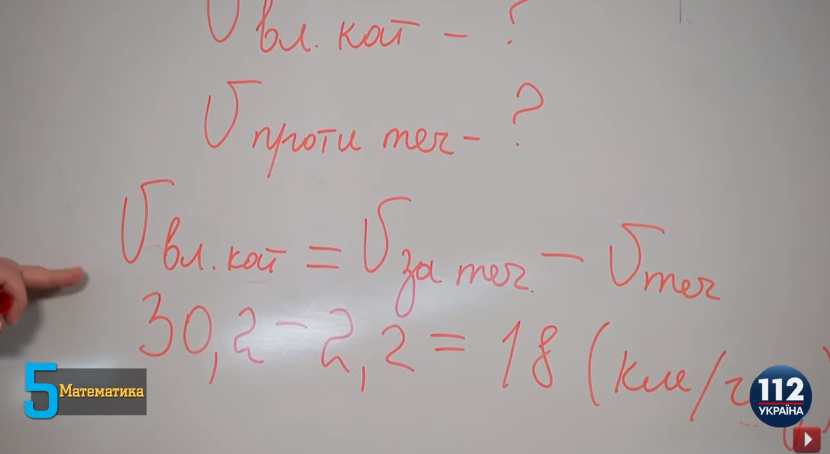 V вл. кат - ?
V проти теч - ?
V вл. кат = V за теч. - V теч
30,2 - 2,2 = 18 (км/г
5 Математика
112
УКРАЇНА